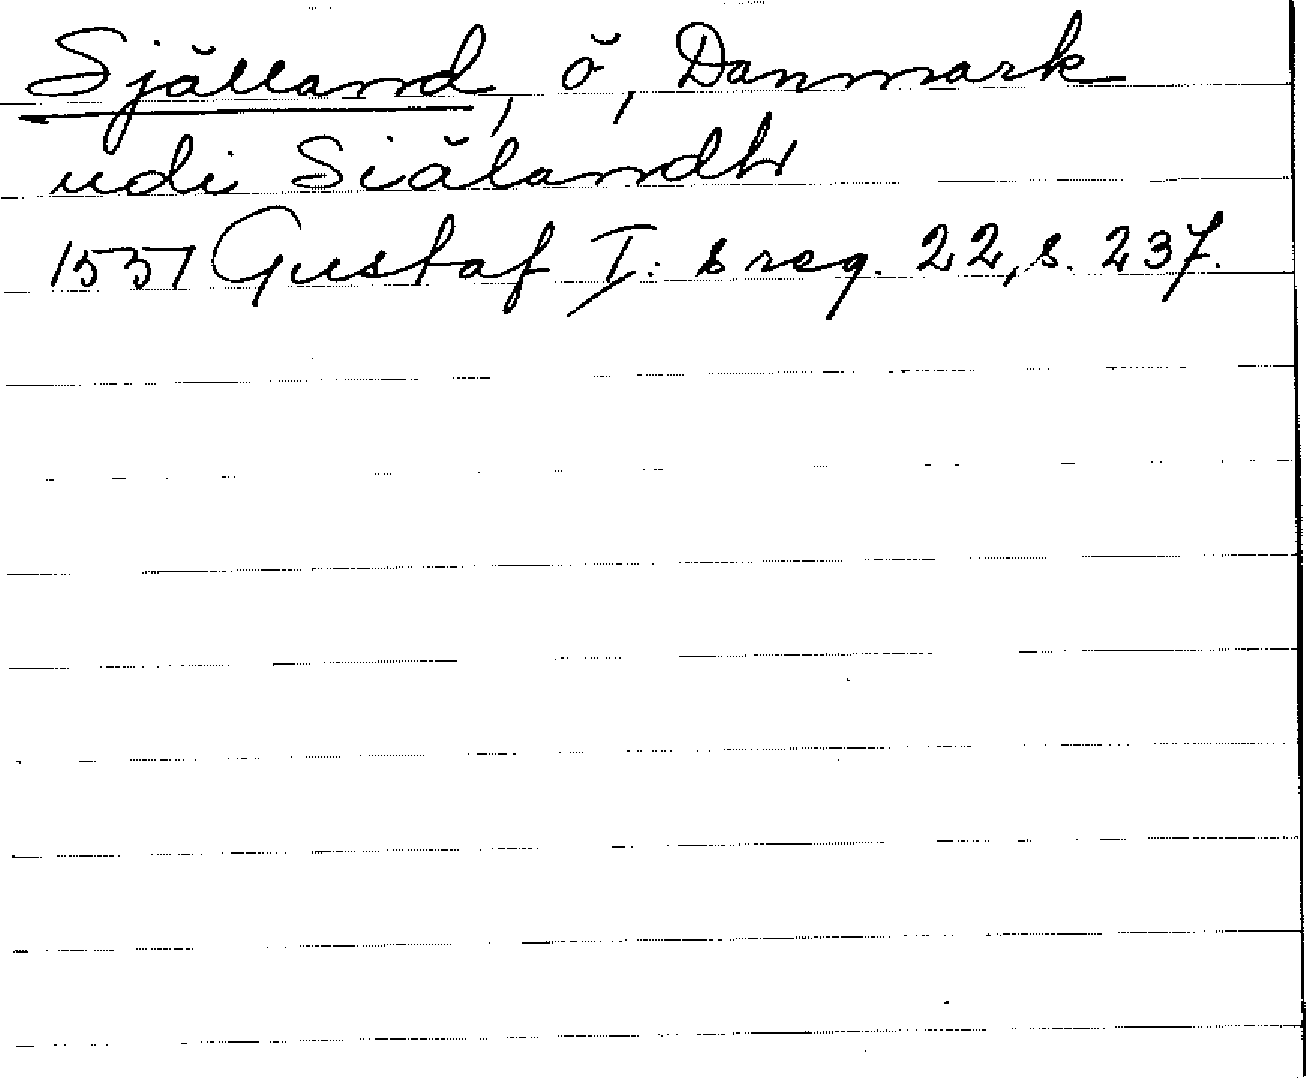 Själland, ö, Danmark
udi Siälandh
1551 Gustaf I: s reg. 22, s. 237.